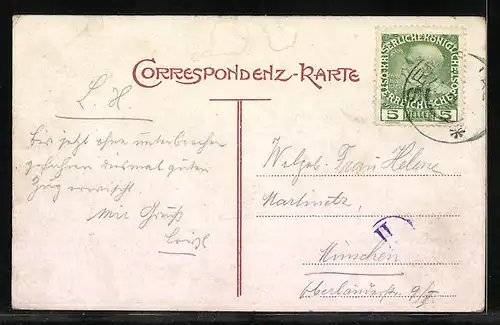 CORRESPONDENZ-KARTE
KAISERLICHE KÖNIGLICHE ÖSTERREICHISCHE
5 HELLER 5
L. H.
bis jetzt ohne unterbrechen
gefahren diesmal guten
Zug erwischt
Mit Gruß
Wolgeb. Frau Helene
Martinetz,
II
München
Oberländerstr. 9/II